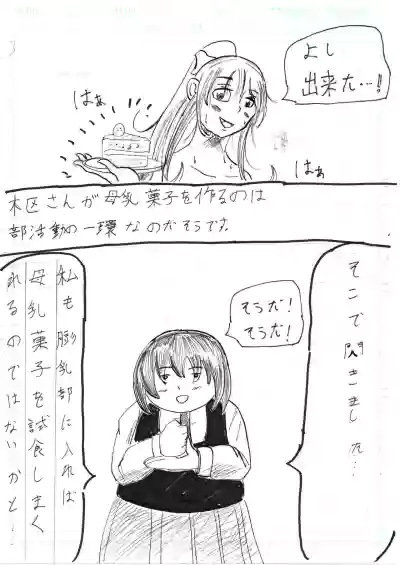 よし
出来た…!
はぁ
はぁ
木区さんが母乳菓子を作るのは
部活動の一環なのだそうです。
そこで閃きました…
そうだ!
そうだ!
私も膨乳部に入れば
母乳菓子を試食しまく
れるのではないかと!